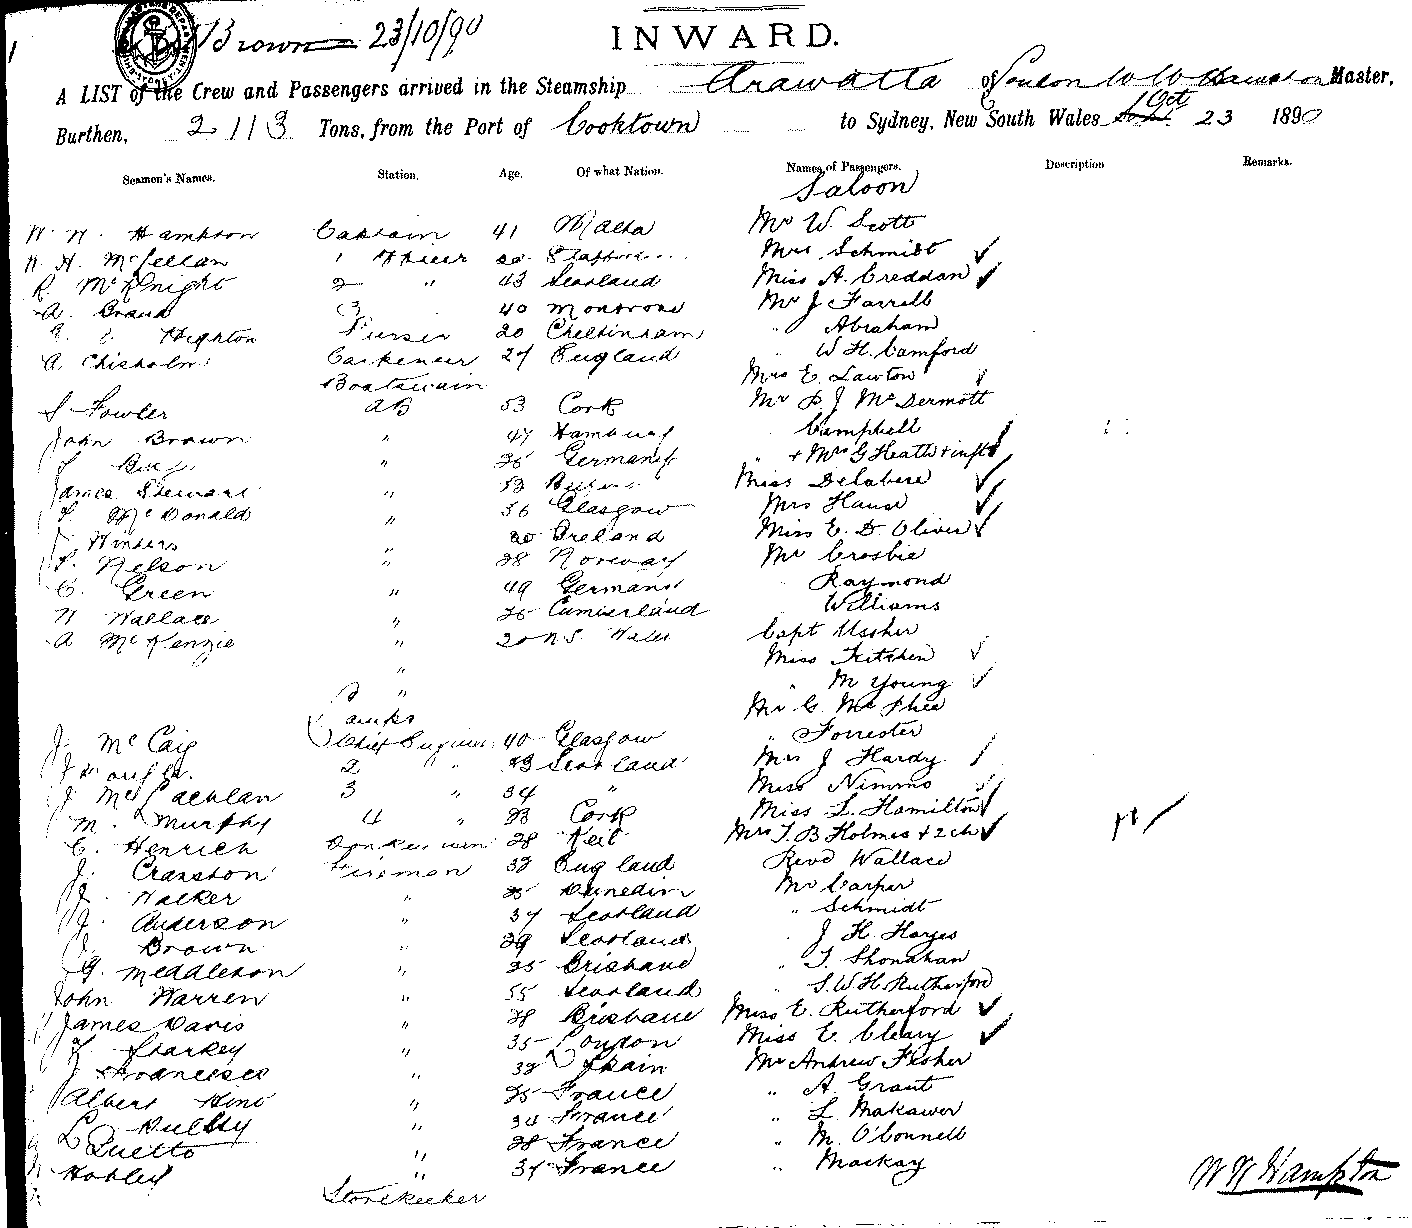 Brown 23/10/90
INWARD.
A LIST of the Crew and Passengers arrived in the Steamship Arawatta of London W W Hampton Master,
Burthen, 2113 Tons, from the Port of Cooktown to Sydney, New South Wales Oct 23 1890
Seamen's Names. Station. Age. Of what Nation. Names of Passengers. Description Remarks.
Saloon
Hampton Captain 41 Malta Mr W. Scott
McLellan 1 Officer Mrs Schmidt
R. McKnight 2 " 43 Scotland Miss A. Creddan
A. 3 40 Montrose Mr J Farrell
Highton Purser 20 Cheltinham " Abraham
A Chisholm Carpenter 27 England W H. Camford
Boatswain Mrs E. Lawton
S Fowler AB 53 Cork Mr P J McDermott
John Brown " 47 Hamburg Campbell
" Germany " + Mrs G Heath + inft
James Stewart " 53 Miss Delabere
McDonald " 36 Glasgow Mrs Hause
Winters " Ireland Miss E. D. Oliver
Nelson " 28 Norway Mr Crosbie
C. Green " 49 Germany Raymond
W Wallace " Cumberland Williams
A McKenzie " 20 N.S. Wales Capt Ussher
" Miss Kitchen
" " M Young
Lamps Mr G. McPhee
J. McCaig Chief Engineer 40 Glasgow " Forrester
2 " 43 Scotland Mrs J Hardy
J. McLachlan 3 " 34 " Miss Nimmo
M. Murphy 4 " Cork Miss L. Hamilton
C. Henrich Donkeyman 28 Keil Mrs T. B Holmes + 2 ch
J. Cranston Fireman 32 England Revd Wallace
J. Walker " Dunedin Mr Carper
J. Anderson " 37 Scotland " Schmidt
Brown " 29 Scotland J H. Hayes
G. Meddleton " 25 Brisbane " T. Shonahan
John Warren " 55 Scotland " S. W. H. Rutherford
James Davis " 28 Brisbane Miss E. Rutherford
Starkey " 35 London Miss E. Cleary
J Francisco " 32 Spain Mr Andrew Fisher
Albert " 25 France " A Grant
" 34 France " L Makawer
" 28 France " M. O'Connell
" 37 France " Mackay
Storekeeker
W W Hampton